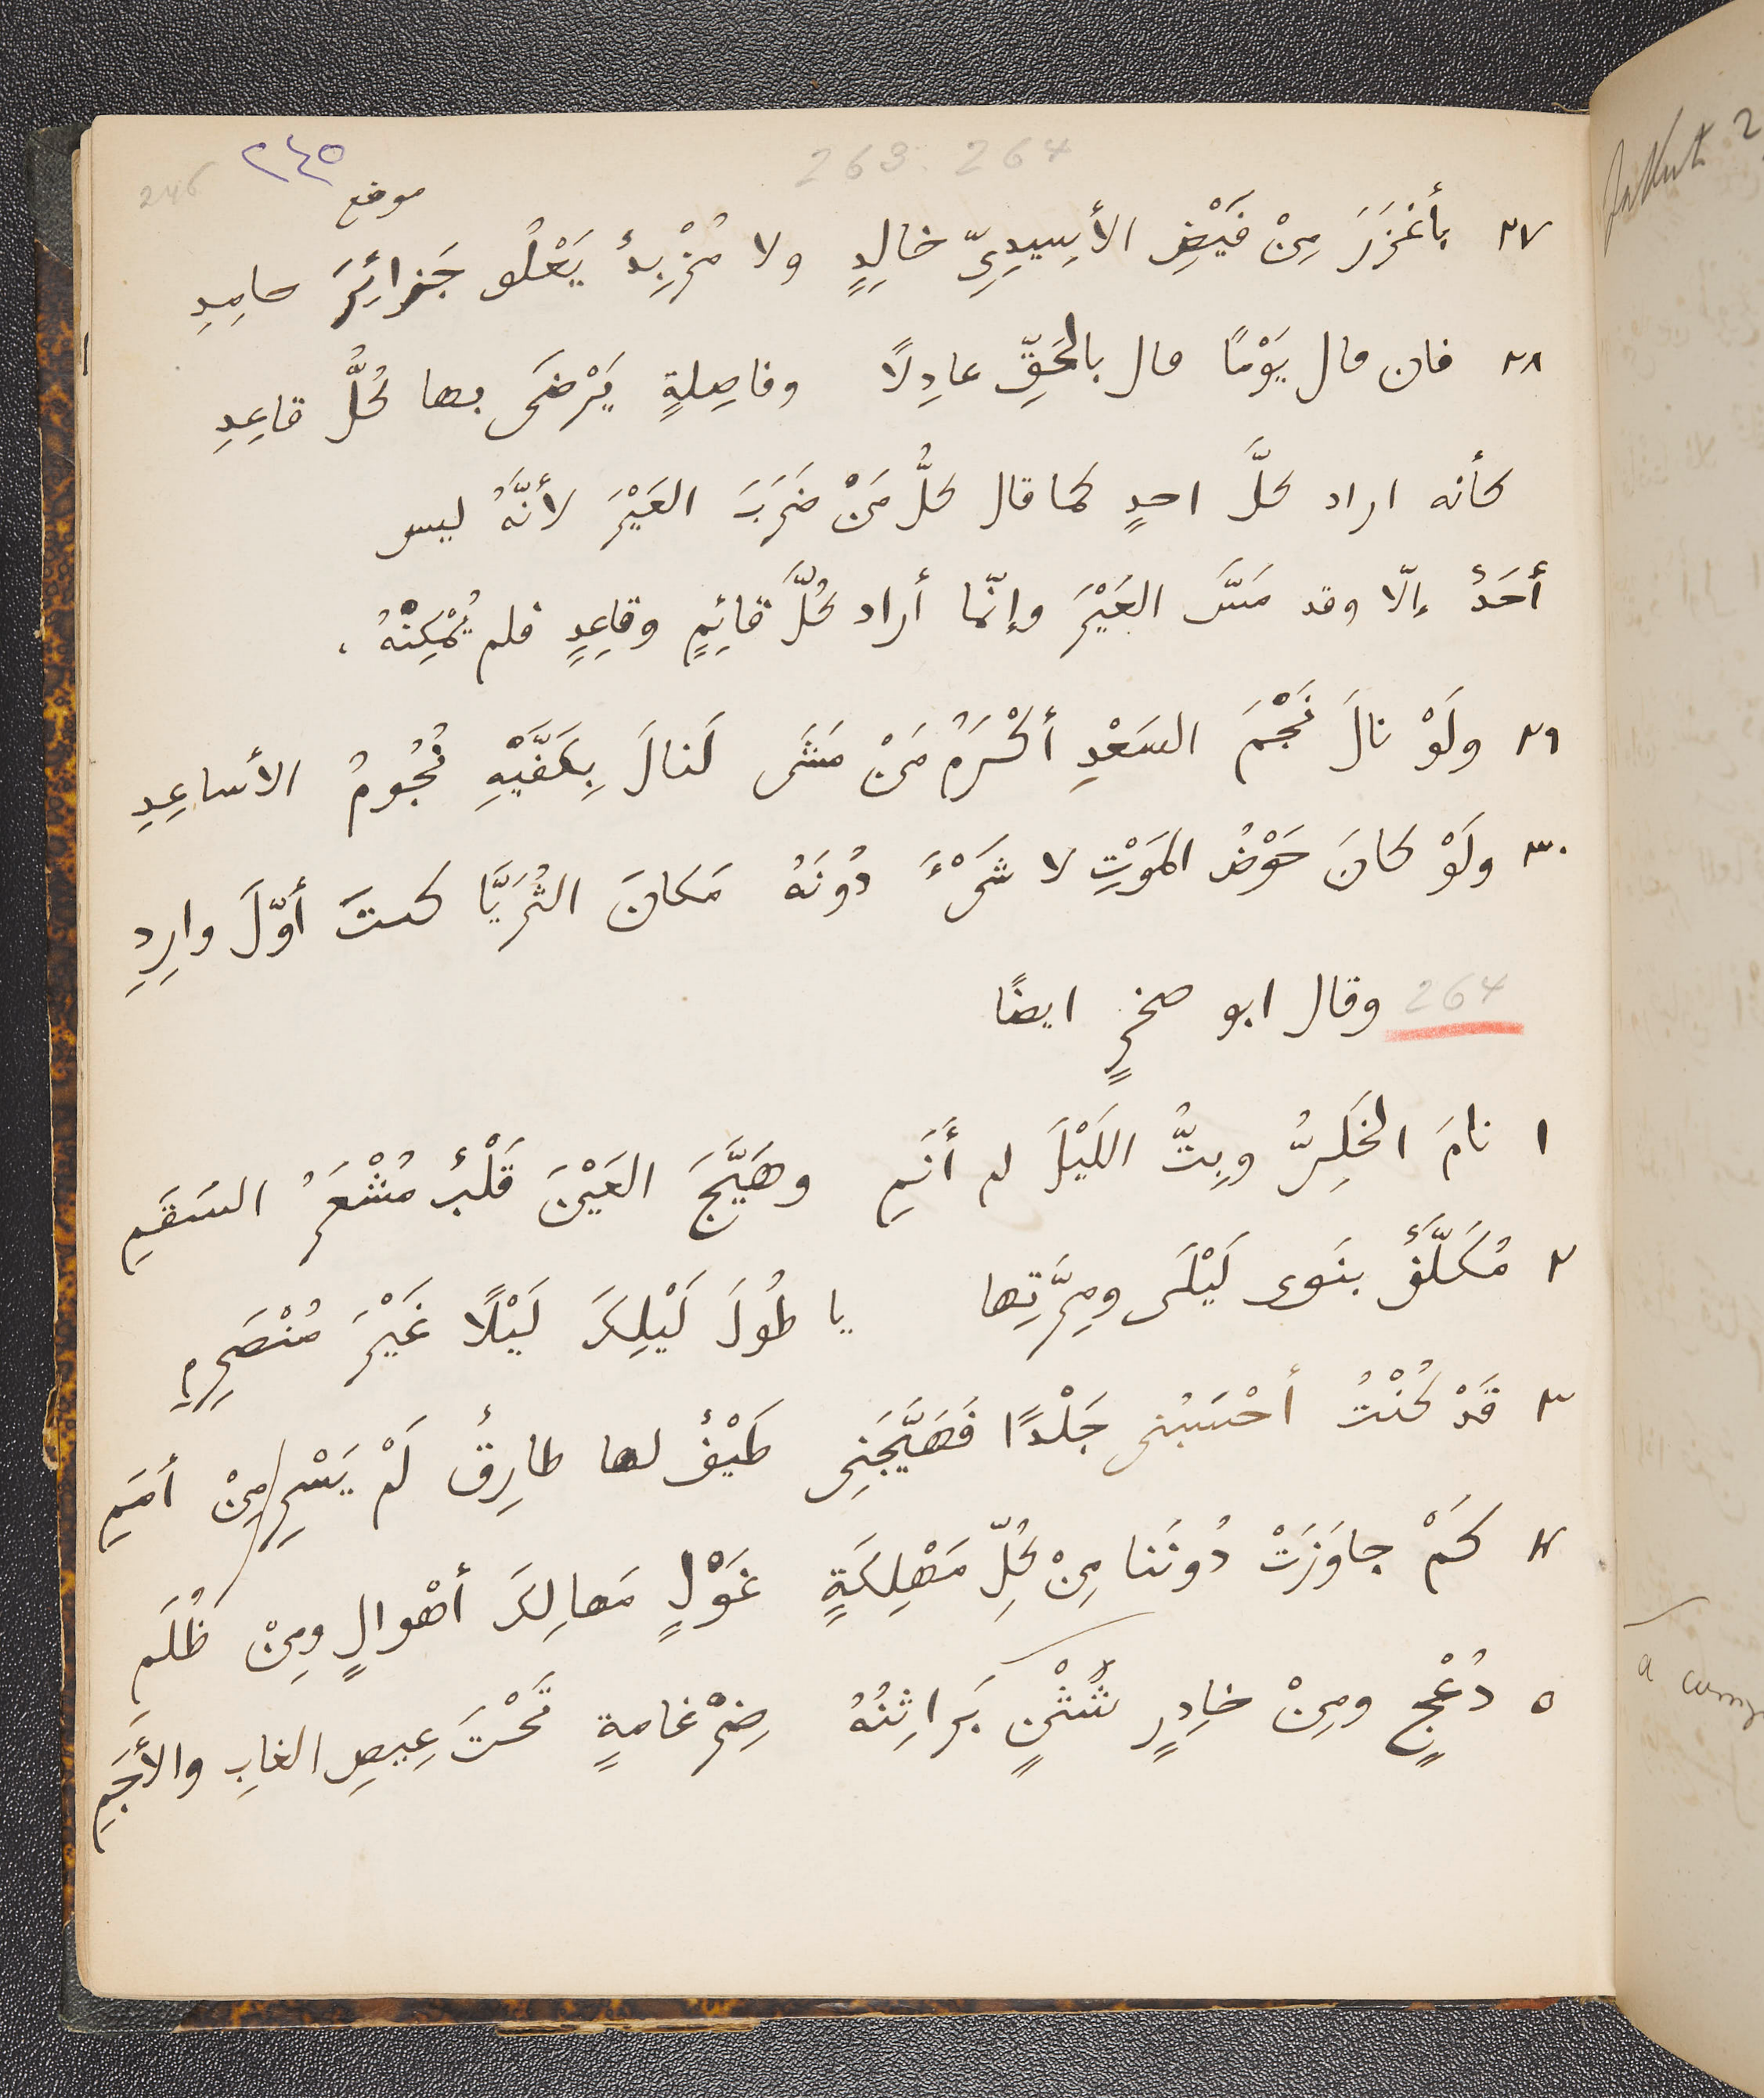 263. 264
٢٤٥
246
موضع
٢٧ بأَغْزَرَ مِنْ فَيْضِ الأَسِيدِىِّ خالِدٍ ولا مُزْبِدٌ يَعْلُو جَزائِرَ حامِدِ
٢٨ فان مال يَوْمًا مال بالحَقِّ عادِلًا وفاصِلةٍ يَرْضَى بها كُلُّ قاعِدِ
كأنه اراد كلَّ احدٍ كما قال كلُّ مَنْ ضَرَبَ العَيْرَ لأنَّهُ ليس
أَحَدٌ إلّا وقد مَسَّ العَيْرَ وإنّما أراد كُلَّ قائِمٍ وقاعِدٍ فلم يُمْكِنْهُ ،
٢٩ ولَوْ نالَ نَجْمَ السَعْدِ أَكْرَمُ مَنْ مَشَى لَنالَ بِكَفَّيْهِ نُجُومُ الأساعِدِ
٣٠ ولَوْ كانَ حَوْضُ المَوْتِ لا شَىْءَ دُونَهُ مَكانَ الثُرَيَّا كنتَ أوّلَ وارِدِ
264 وقال ابو صخرٍ ايضًا
١ نامَ الخَلِىُّ وبِتُّ اللَيْلَ لم أَنَمِ وهَيَّجَ العَيْنَ قَلْبٌ مُشْعَرُ السَقَمِ
٢ مُكَلَّفٌ بنَوى لَيْلَى ومِرَّتِها يا طُولَ لَيْلِكَ لَيْلًا غَيْرَ مُنْصَرِمِ
٣ قَدْ كُنْتُ أحْسَبُنى جَلْدًا فَهَيَّجَنِى طَيْفٌ لها طارِقٌ لَمْ يَسْرِ مِنْ أمَمِ
٤ كَمْ جاوَزَتْ دُونَنا مِنْ كُلِّ مَهْلِكَةٍ غَوْلٍ مَهالِكَ أهْوالٍ ومِنْ ظُلَمِ
٥ دُعْجٍ ومِنْ خادِرٍ شُثْنٍ بَراثِنُهُ ضِرْغامةٍ تَحْتَ عِيصِ الغابِ والأجَمِ